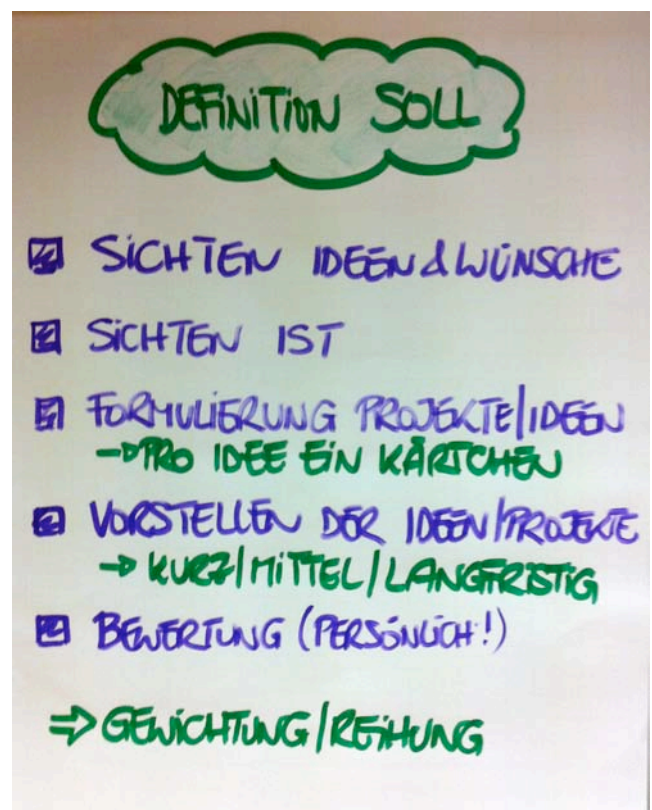 DEFINITION SOLL
SICHTEN IDEEN & WÜNSCHE
SICHTEN IST
FORMULIERUNG PROJEKTE/IDEEN
→ PRO IDEE EIN KÄRTCHEN
VORSTELLEN DER IDEEN/PROJEKTE
→ KURZ/MITTEL/LANGFRISTIG
BEWERTUNG (PERSÖNLICH!)
⇒ GEWICHTUNG/REIHUNG